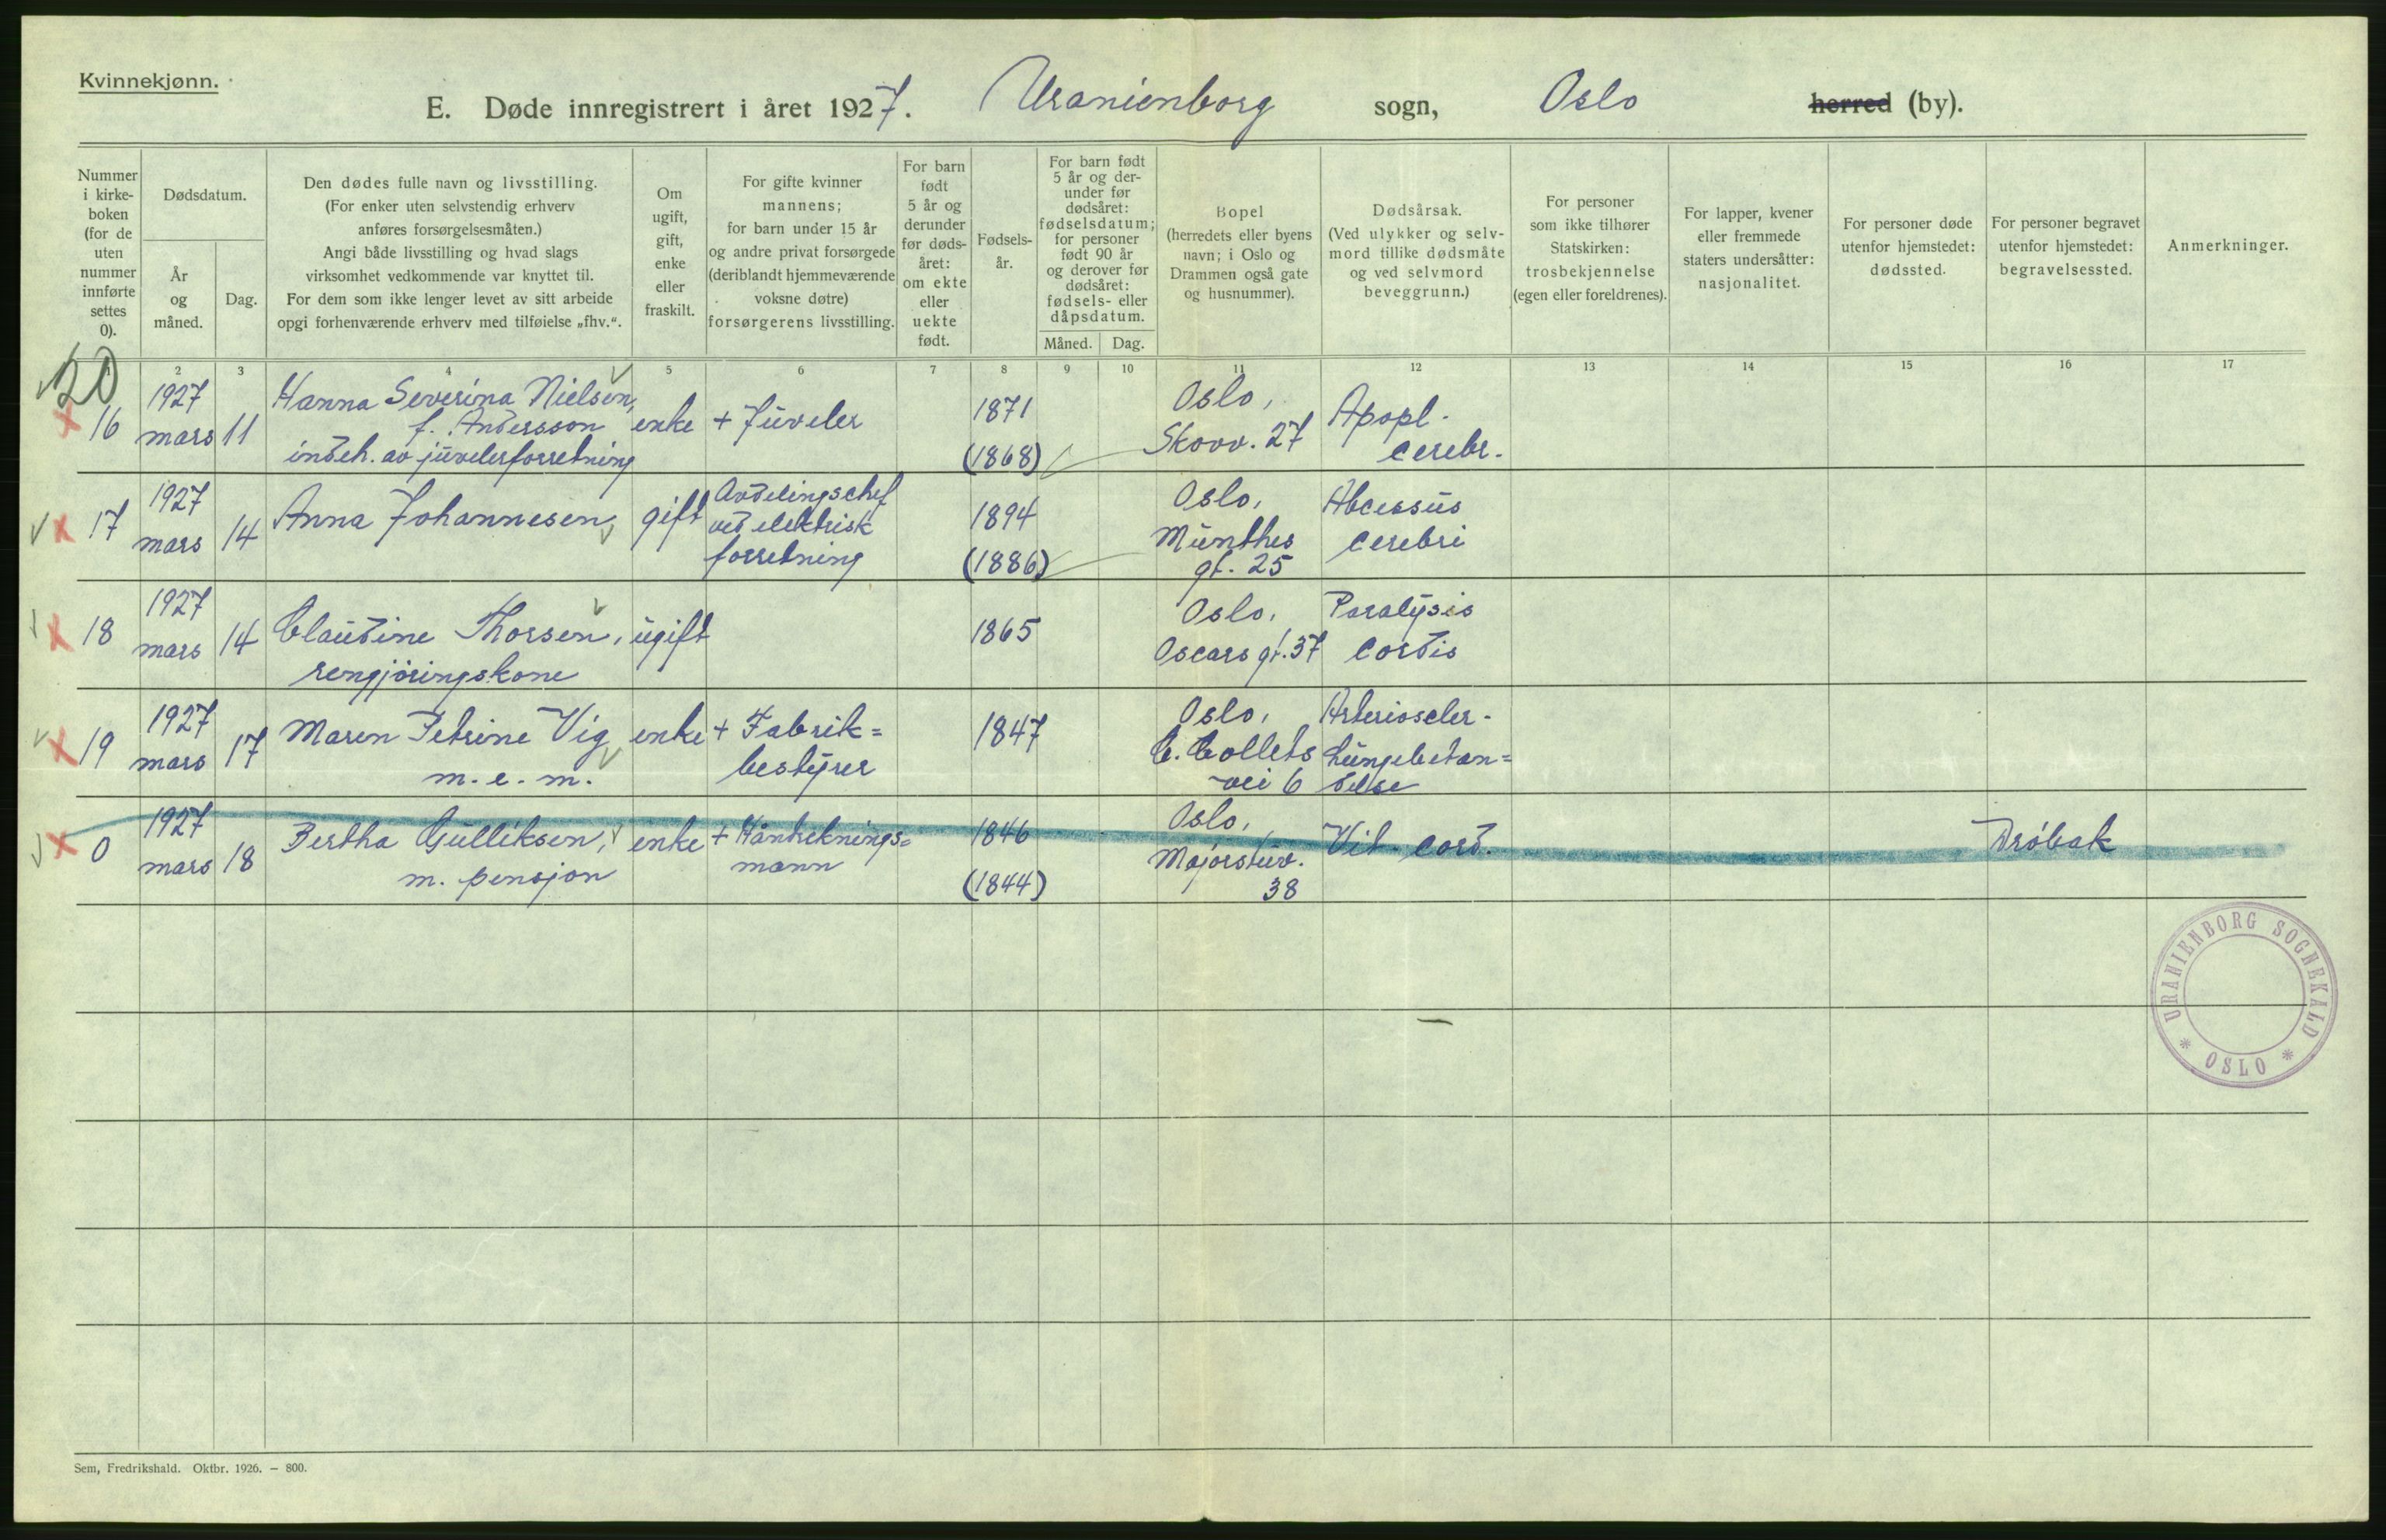 Kvinnekjønn.
E. Døde innregistrert i året 1927. Uranienborg sogn, Oslo herred (by).
Nummer i kirke-boken (for de uten nummer innførte settes 0).
Dødsdatum.
År og måned.
Dag.
Den dødes fulle navn og livsstilling.
(For enker uten selvstendig erhverv
anføres forsørgelsesmåten.)
Angi både livsstilling og hvad slags
virksomhet vedkommende var knyttet til.
For dem som ikke lenger levet av sitt arbeide
opgi forhenværende erhverv med tilføielse „fhv.“.
Om
ugift,
gift,
enke
eller
fraskilt.
For gifte kvinner
mannens;
for barn under 15 år
og andre privat forsørgede
(deriblandt hjemmeværende
voksne døtre)
forsørgerens livsstilling.
For barn
født
5 år og
derunder
før døds-
året:
om ekte
eller
uekte
født.
Fødsels-
år.
For barn født
5 år og der-
under før
dødsåret:
fødselsdatum;
for personer
født 90 år
og derover før
dødsåret:
fødsels- eller
dåpsdatum.
Måned. Dag.
Bopel
(herredets eller byens
navn; i Oslo og
Drammen også gate
og husnummer).
Dødsårsak.
(Ved ulykker og selv-
mord tillike dødsmåte
og ved selvmord
beveggrunn.)
For personer
som ikke tilhører
Statskirken:
trosbekjennelse
(egen eller foreldrenes).
For lapper, kvener
eller fremmede
staters undersåtter:
nasjonalitet.
For personer døde
utenfor hjemstedet:
dødssted.
For personer begravet
utenfor hjemstedet:
begravelsessted.
Anmerkninger.
1 2 3 4 5 6 7 8 9 10 11 12 13 14 15 16 17
20
16
1927
mars 11
Hanna Severina Nielsen,
f. Andersson
indeh. av juvelerforretning
enke
+ Juveler
1871
(1868)
Oslo,
Skovv. 27
Apopl.
cerebr.
17
1927
mars 14
Anna Johannesen,
gift
Avdelingschef
ved elektrisk
forretning
1894
(1886)
Oslo,
Munthes
gt. 25
Abcessus
cerebri
18
1927
mars 14
Claudine Thorsen,
rengjøringskone
ugift
1865
Oslo,
Oscars gt. 37
Paralysis
cordis
19
1927
mars 17
Maren Petrine Vig
m. e. m.
enke
+ Fabrik=
bestyrer
1847
Oslo,
C. Collets
vei 6
Arterioscler-
Lungebetæn=
delse
0
1927
mars 18
Bertha Gulliksen,
m. pensjon
enke
+ Håndteknings=
mann
1846
(1844)
Oslo,
Majorstuv.
38
Vit. cord.
Drøbak
URANIENBORG SOGNEKALD
* OSLO *
Sem, Fredrikshald. Oktbr. 1926. — 800.